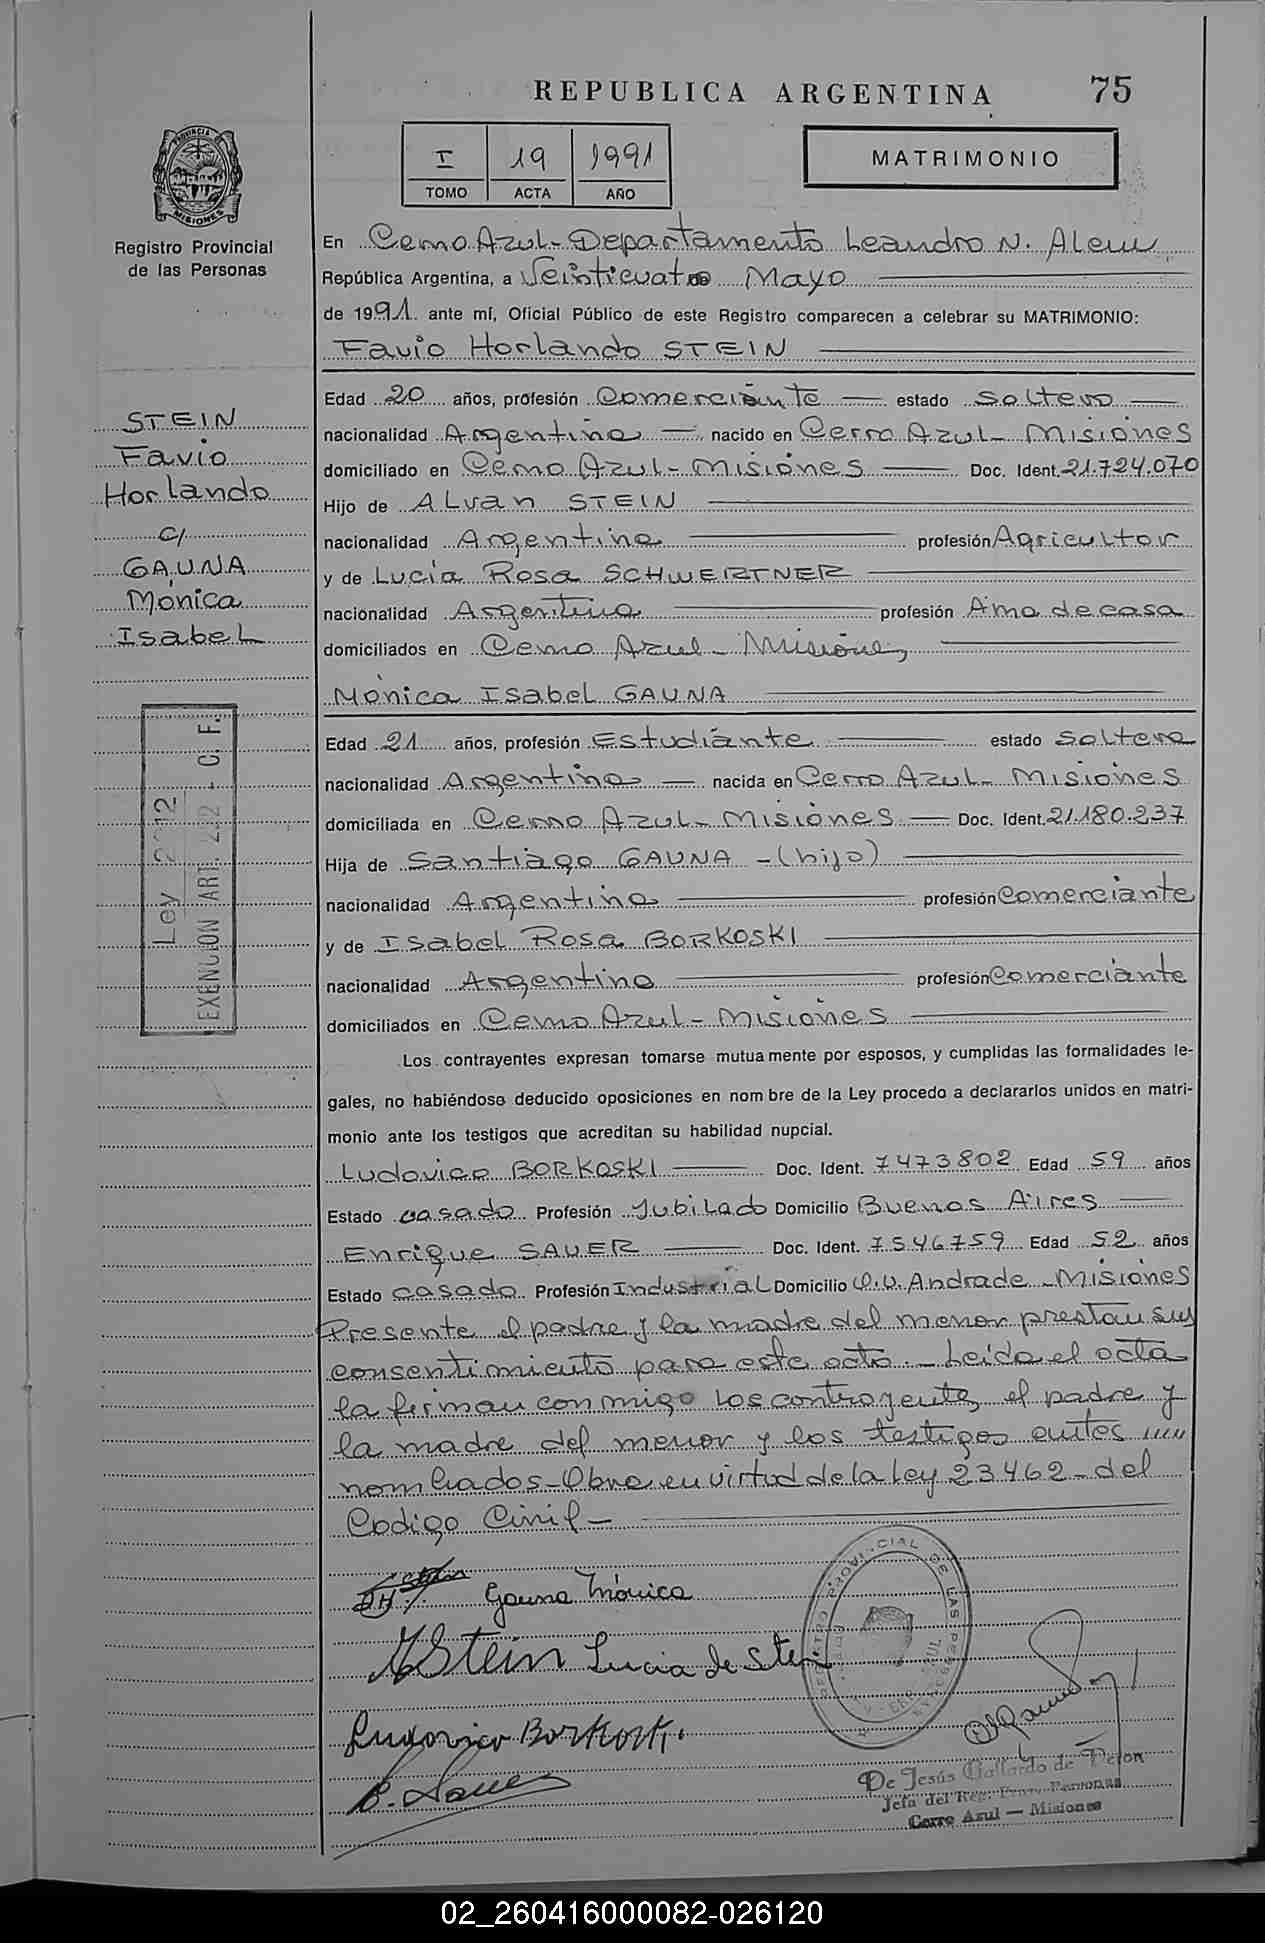 REPUBLICA ARGENTINA 75
PROVINCIA DE MISIONES
Registro Provincial
de las Personas
I 19 1991
TOMO ACTA AÑO
MATRIMONIO
En Cerro Azul - Departamento Leandro N. Alem
República Argentina, a Veinticuatro Mayo
de 1991 ante mí, Oficial Público de este Registro comparecen a celebrar su MATRIMONIO:
Favio Horlando STEIN
Edad 20 años, profesión Comerciante estado Soltero
nacionalidad Argentina nacido en Cerro Azul - Misiones
domiciliado en Cerro Azul - Misiones Doc. Ident. 21.724.070
Hijo de ALvan STEIN
nacionalidad Argentina profesión Agricultor
y de Lucía Rosa SCHWERTNER
nacionalidad Argentina profesión Ama de casa
domiciliados en Cerro Azul - Misiones
Mónica Isabel GAUNA
Edad 21 años, profesión Estudiante estado Soltera
nacionalidad Argentina nacida en Cerro Azul - Misiones
domiciliada en Cerro Azul - Misiones Doc. Ident. 21.180.237
Hija de Santiago GAUNA - (hijo)
nacionalidad Argentina profesión Comerciante
y de Isabel Rosa BORKOSKI
nacionalidad Argentina profesión Comerciante
domiciliados en Cerro Azul - Misiones
Los contrayentes expresan tomarse mutuamente por esposos, y cumplidas las formalidades le-
gales, no habiéndose deducido oposiciones en nombre de la Ley procedo a declararlos unidos en matri-
monio ante los testigos que acreditan su habilidad nupcial.
Ludovico BORKOSKI Doc. Ident. 7473802 Edad 59 años
Estado casado Profesión Jubilado Domicilio Buenos Aires
Enrique SAUER Doc. Ident. 7546759 Edad 52 años
Estado casado Profesión Industrial Domicilio O.V. Andrade - Misiones
Presente el padre y la madre del menor prestan sus
consentimiento para este acto. - Leída el acta
la firman conmigo los contrayentes, el padre y
la madre del menor y los testigos antes
nombrados - Obro en virtud de la Ley 23462 - del
Codigo Civil -
STEIN
Favio
Horlando
c/
GAUNA
Mónica
Isabel
Ley 2
EXENCION ART. - C. F.
Gauna Mónica
AStein Lucia de Stein
Ludovico Borkoski
E. Sauer
REGISTRO PROVINCIAL DE LAS PERSONAS
De Jesús Gallardo de Peron
Jefa del Reg. Prov. Personas
Cerro Azul — Misiones
02_260416000082-026120